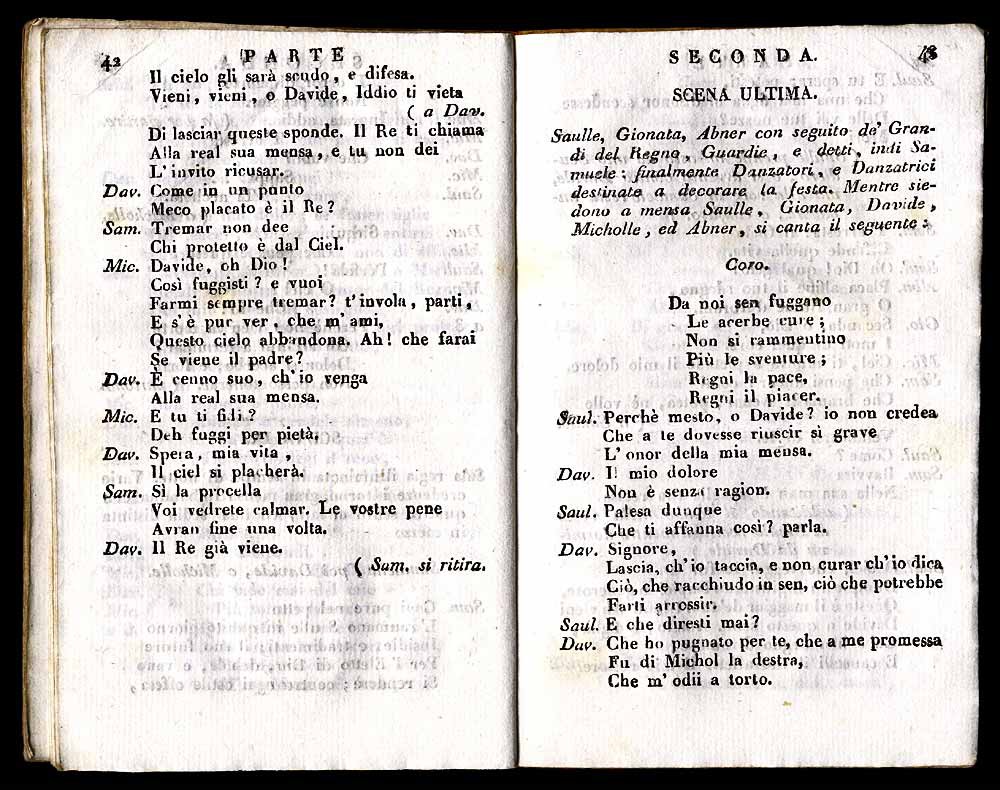 42 PARTE
Il cielo gli sarà scudo, e difesa.
Vieni, vieni, o Davide, Iddio ti vieta
( a Dav.
Di lasciar queste sponde. Il Re ti chiama
Alla real sua mensa, e tu non dei
L' invito ricusar.
Dav. Come in un punto
Meco placato è il Re?
Sam. Tremar non dee
Chi protetto è dal Ciel.
Mic. Davide, oh Dio!
Così fuggisti? e vuoi
Farmi sempre tremar? t' invola, parti,
E s' è pur ver, che m' ami,
Questo cielo abbandona. Ah! che farai
Se viene il padre?
Dav. È cenno suo, ch' io venga
Alla real sua mensa.
Mic. E tu ti fidi?
Deh fuggi per pietà.
Dav. Spera, mia vita,
Il ciel si placherà.
Sam. Sì la procella
Voi vedrete calmar. Le vostre pene
Avran fine una volta.
Dav. Il Re già viene.
( Sam. si ritira.
SECONDA. 43
SCENA ULTIMA.
Saulle, Gionata, Abner con seguito de' Gran-
di del Regno, Guardie, e detti, indi Sa-
muele: finalmente Danzatori, e Danzatrici
destinate a decorare la festa. Mentre sie-
dono a mensa Saulle, Gionata, Davide,
Micholle, ed Abner, si canta il seguente:
Coro.
Da noi sen fuggano
Le acerbe cure;
Non si rammentino
Più le sventure;
Regni la pace,
Regni il piacer.
Saul. Perchè mesto, o Davide? io non credea
Che a te dovesse riuscir sì grave
L' onor della mia mensa.
Dav. Il mio dolore
Non è senza ragion.
Saul. Palesa dunque
Che ti affanna così? parla.
Dav. Signore,
Lascia, ch' io taccia, e non curar ch' io dica
Ciò, che racchiudo in sen, ciò che potrebbe
Farti arrossir.
Saul. E che diresti mai?
Dav. Che ho pugnato per te, che a me promessa
Fu di Michol la destra,
Che m' odii a torto.